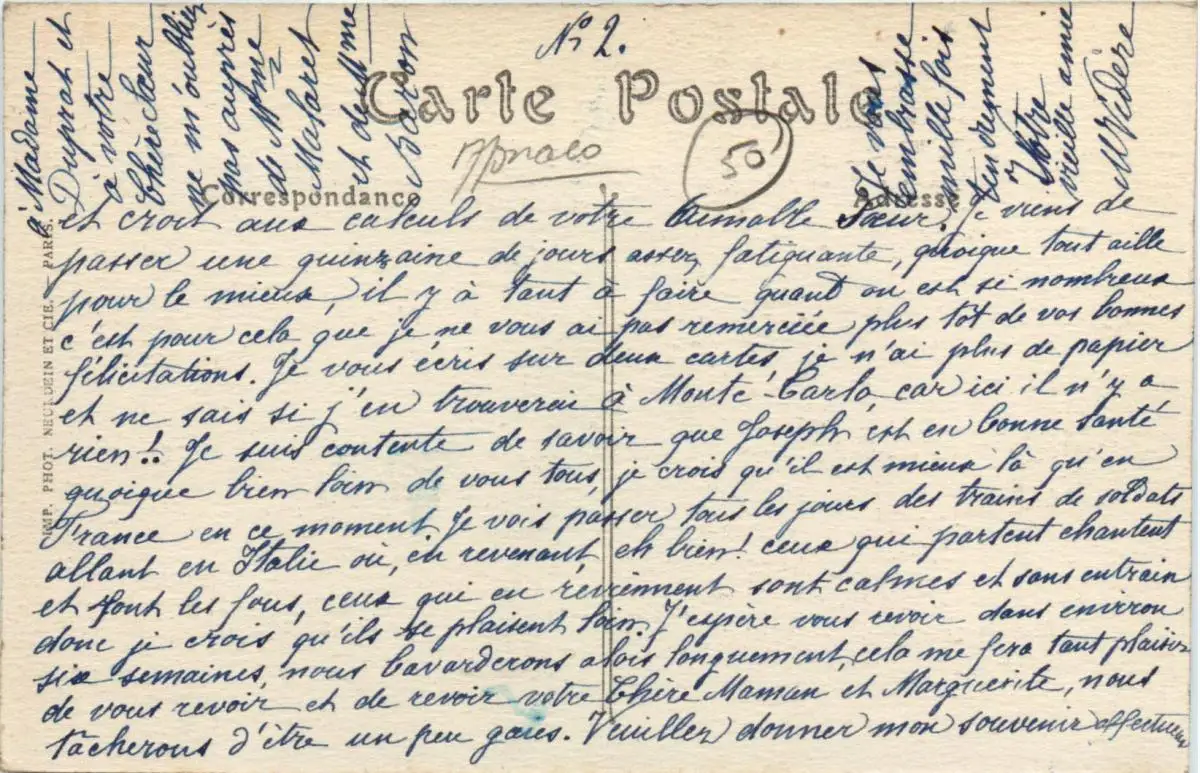 N° 2.
Carte Postale
50
Correspondance
Adresse
IMP. PHOT. NEURDEIN ET CIE. PARIS.
et croit aux calculs de votre aimable Sœur. Je viens de
passer une quinzaine de jours assez fatiguante, quoique tout aille
pour le mieux, il y à tant à faire quand on est si nombreux
c'est pour cela que je ne vous ai pas remerciée plus tôt de vos bonnes
félicitations. Je vous écris sur deux cartes, je n'ai plus de papier
et ne sais si j'en trouverai à Monté-Carlo, car ici il n'y a
rien!! Je suis contente de savoir que Joseph est en bonne santé
quoique bien loin de vous tous, je crois qu'il est mieux là qu'en
France en ce moment. Je vois passer tous les jours des trains de soldats
allant en Italie où, en revenant, eh bien! ceux qui partent chantent
et font les fous, ceux qui en reviennent sont calmes et sans entrain
donc je crois qu'ils se plaisent loin. J'espère vous revoir dans environ
six semaines, nous bavarderons alors longuement, cela me fera tant plaisir
de vous revoir et de revoir votre Chère Maman et Marguerite, nous
tâcherons d'être un peu gaies. Veuillez donner mon souvenir affectueux
à Madame
Duprat et
à votre
Chère Sœur
ne m'oubliez
pas auprès
de Mme
Masaret
et de Mme
Baron
Je vous
embrasse
mille fois
tendrement
Votre
vieille amie
M Védère